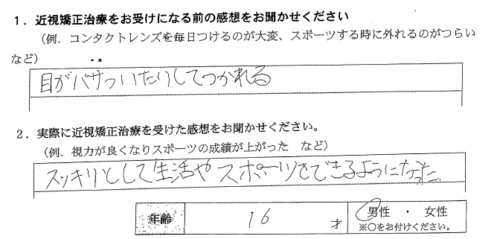 1．近視矯正治療をお受けになる前の感想をお聞かせください
（例．コンタクトレンズを毎日つけるのが大変、スポーツする時に外れるのがつらい
など）
目がパサついたりしてつかれる
2．実際に近視矯正治療を受けた感想をお聞かせください。
（例．視力が良くなりスポーツの成績が上がった　など）
スッキリとして生活やスポーツをできるようになった
年齢 16 才 男性 ・ 女性
※○をお付けください。